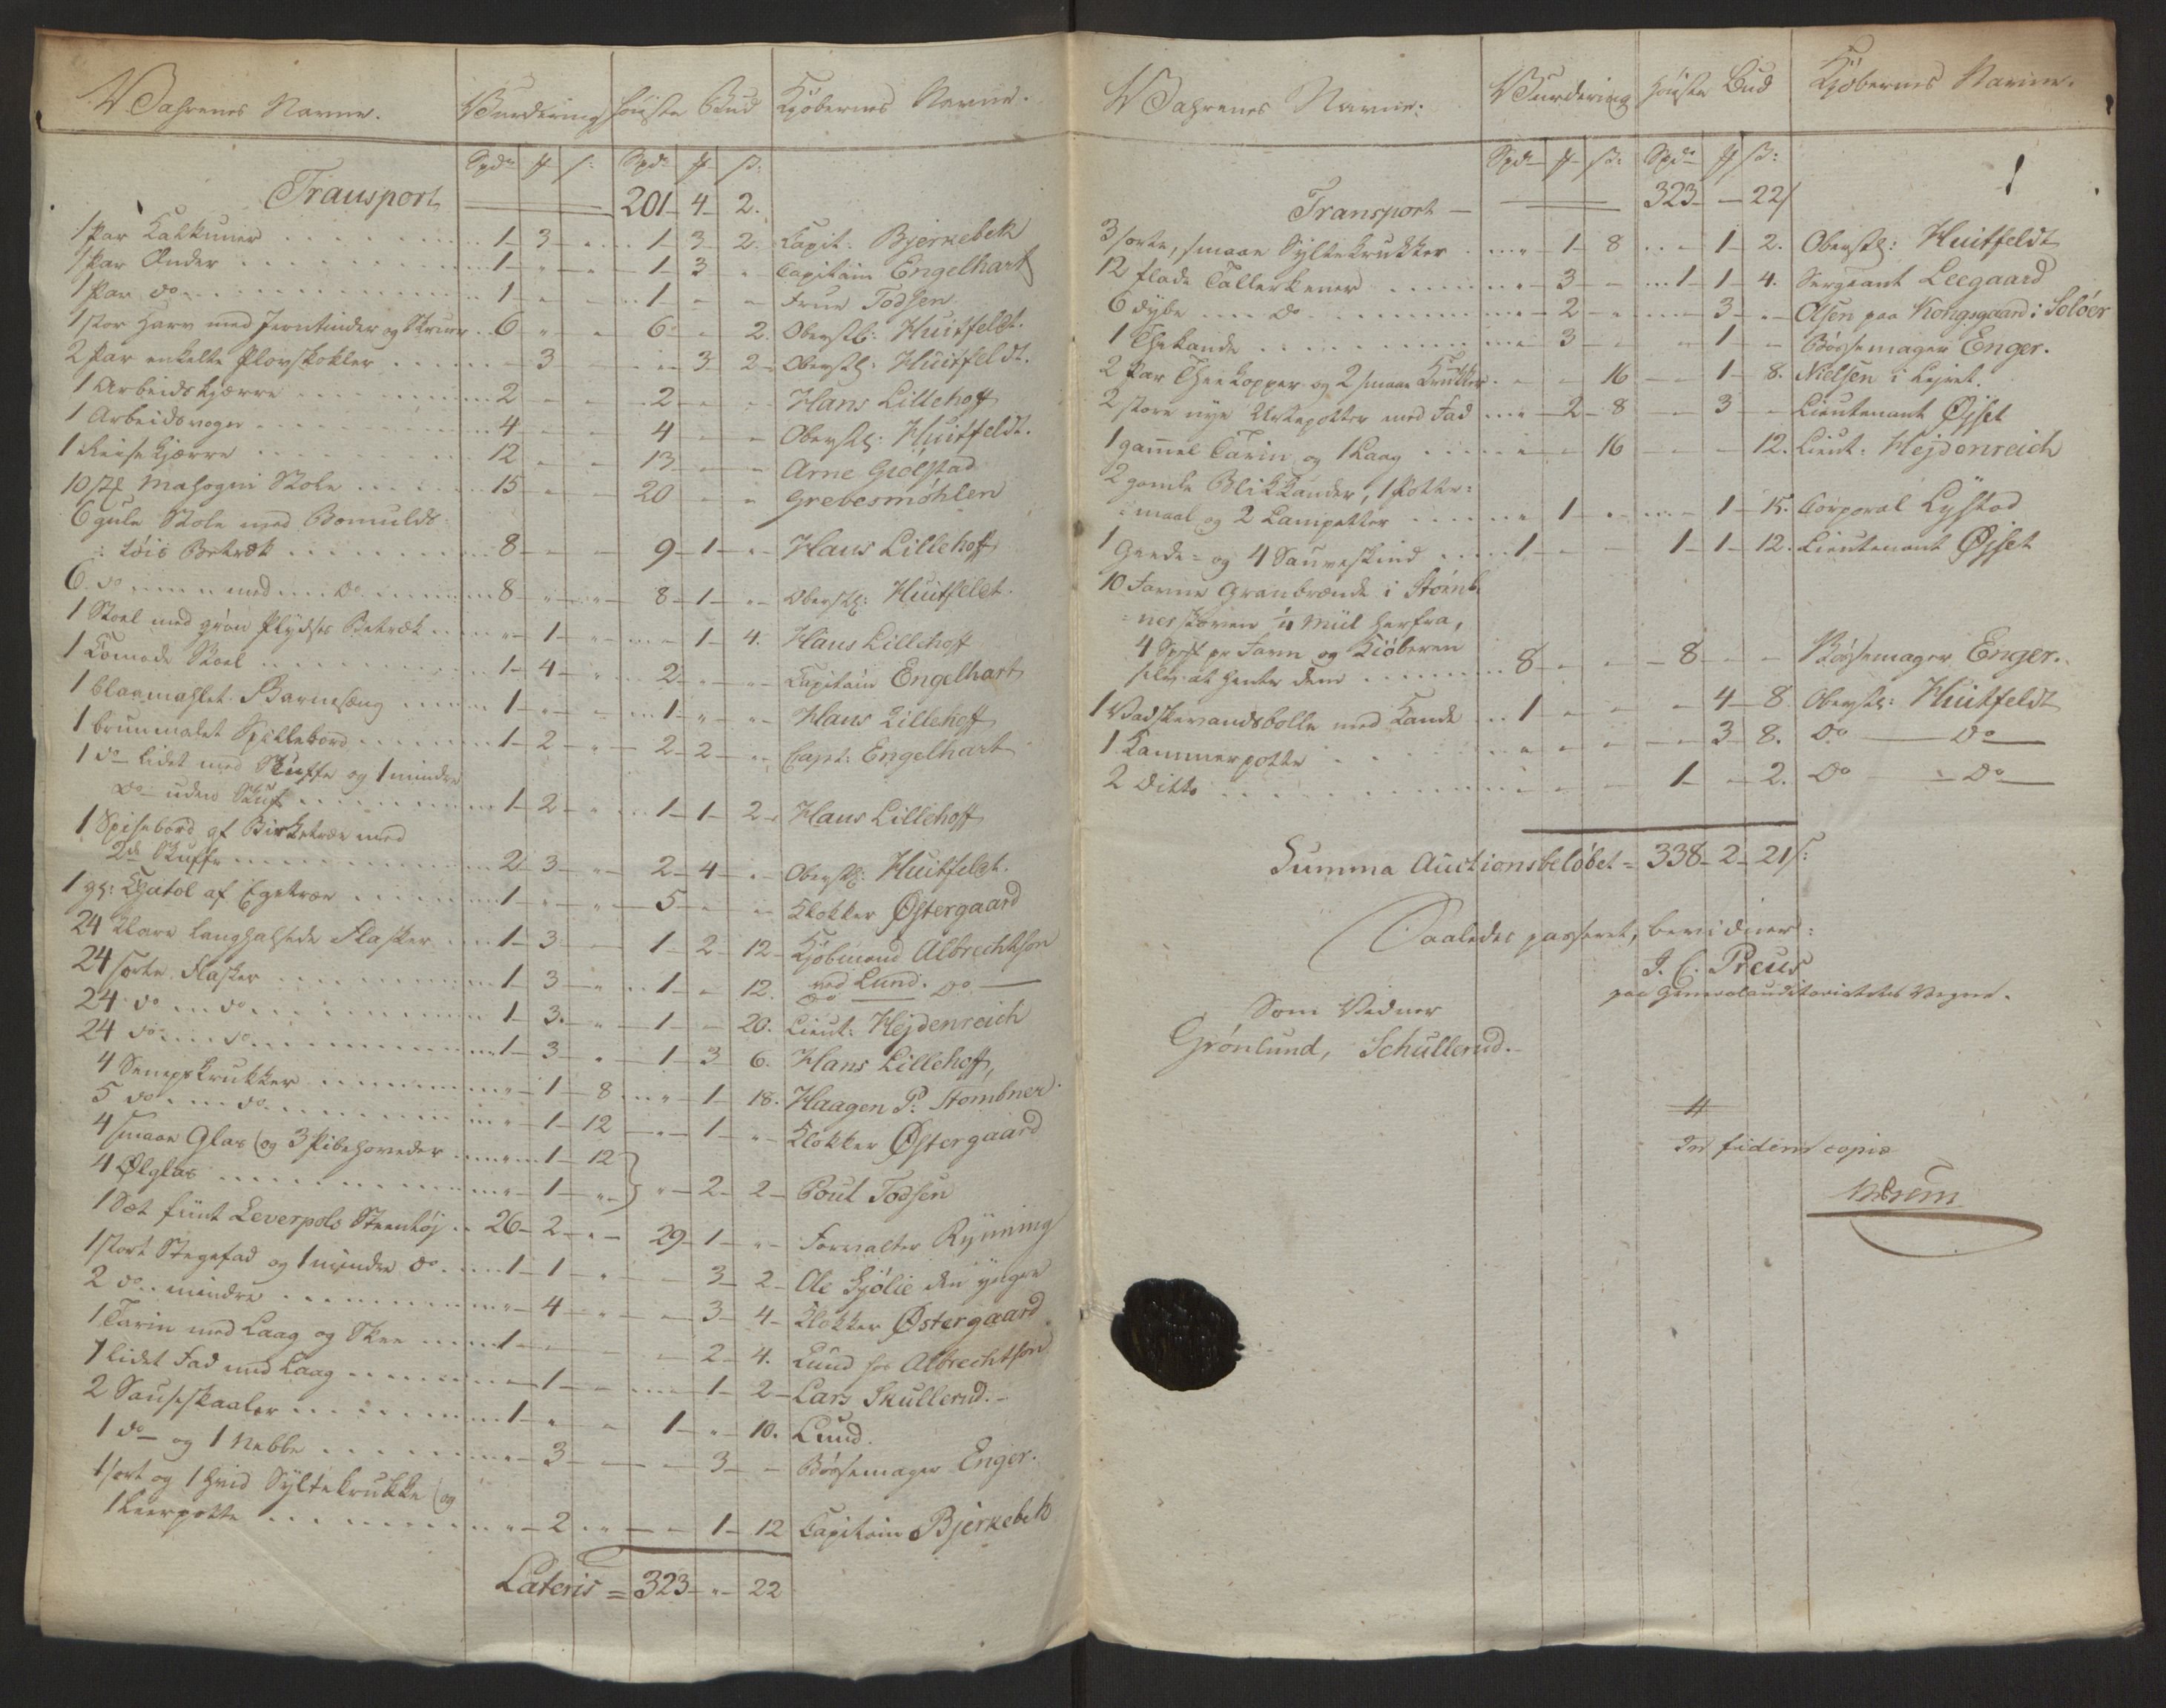 Wahrenes Navne. Wurdering høieste Bud Kjøbernes Navne.
Spd. ſ. Spd. ß.
Transport 201 - 4 - 2.
1 Par Kalkuner 1 - 3 - " 1 - 3 - 2. Capit: Bjerkebek
1 Par Ænder 1 - " - " 1 - 3 - " Capitain Engelhart
1 Par do 1 - " - " 1 - " - " Frue Todsen
1 stor Harv med Jerntinder og Skruer 6 - " - " 6 - " - 2. Oberstl: Huitfeldt.
2 Par enkelte Plovskokler " - 3 - " " - 3 - 2 Oberstl: Huitfeldt.
1 Arbeidskjærre 2 - " - " 2 - " - " Hans Lillehoff
1 Arbeidsvogn 4 - " - " 4 - " - " Oberstl: Huitfeldt.
1 Reisekjærre 12 - " - " 13 - " - " Arne Gjølstad
10 stk Mahogni Stole 15 - " - " 20 - " - " Grevesmøhlen
6 gule Stole med Bomulds
: tøis Betræk 8 - " - " 9 - 1 - " Hans Lillehoff
6 do med do 8 - " - " 8 - 1 - " Oberstl: Huitfeldt.
1 Stoel med grøn Plydses Betræk " - 1 - " " - 1 - 4. Hans Lillehoff
1 Comode Stoel 1 - 4 - " 2 - " - " Capitain Engelhart
1 blaamahlet Barneseng 1 - " - " 1 - " - " Hans Lillehoff
1 brunmalet Spillebord 1 - 2 - " 2 - 2 - " Capt: Engelhart
1 do lidet med Skuffe og 1 mindre
do uden Skuf 1 - 2 - " 1 - 1 - 2 Hans Lillehoff
1 Spisebord af Birketræ med
2de Skuffe 2 - 3 - " 2 - 4 - " Oberstl: Huitfeldt.
1 gl: Chatol af Egetræ 1 - " - " 5 - " - " Klokker Østergaard
24 klare langhalsede Flasker 1 - 3 - " 1 - 2 - 12 Kjøbmand Albrechtson
24 sorte Flasker 1 - 3 - " 1 - " - 12. ved Lund. do do
24 do do 1 - 3 - " 1 - " - 20. Lieut: Hejdenreich
24 do do 1 - 3 - " 1 - 3 - 6. Hans Lillehoff,
4 Senepskrukker " - 1 - 8 " - 1 - 18. Haagen P. Stombner
5 do do " - 1 - 12 " - 1 - " Klokker Østergaard
4 smaae Glas (og 3 Pibehoveder " - 1 - 12
4 Ølglas " - 1 - " } " - 2 - 2 Poul Todsen
1 Sæt fiint Leverpols Steentøj 26 - 2 - " 29 - 1 - " Forvalter Rynning
1 stort Stegefad og 1 mindre do 1 - 1 - " " - 3 - 2 Ole Kjølie den yngre
2 do mindre " - 4 - " " - 3 - 4 Klokker Østergaard
1 Tarin med Laag og Skee 1 - " - " " - 2 - 4. Lund for Albrechtson
1 lidet Fad med Laag " - 1 - " " - 1 - 2 Lars Skullerud.
2 Sauseskaaler 1 - " - " 1 - " - 10. Lund.
1 do og 1 Nebbe " - 3 - " " - 3 - " Bøssemager Enger.
1 sort og 1 hvid Syltekrukke (og
1 Leerpotte " - 2 - " " - 1 - 12 Capitain Bjerkebek
Lateris = 323 - " - 22
Wahrenes Navne. Wurdering høieste Bud Kjøbernes Navne.
Spd. ß: Spd. ß:
Transport 323 - - 22
3 sorte, smaae Syltekrukker " - 1 - 8 " - 1 - 2. Oberstl: Huitfeldt
12 flade Tallerkener " - 3 - " 1 - 1 - 4. Sergeant Leegaard
6 dybe do " - 2 - " " - 3 - " Olsen paa Kongsgaard i Soløer
1 Theekande " - 3 - " " - 1 - " Bøssemager Enger.
2 Par Theekopper og 2 smaae Krukker " - " - 16 " - 1 - 8. Nielsen i Lejret.
2 store nye Urtepotter med Fad " - 2 - 8 " - 3 - " Lieutenant Øjset
1 gammel Tarin og 1 Laag " - " - 16 " - " - 12. Lieut: Hejdenreich
2 gamle Blikkander, 1 Potte:
: maal og 2 Lampetter " - 1 - " " - 1 - 15. Corporal Lystad
1 Geede- og 4 Saueskind 1 - " - " 1 - 1 - 12. Lieutenant Øjset
10 Favne Granbrænde i Stomb
: nerskoven 1/4 Miil herfra,
4 Spst pr Favn og Kiøberen
selv at hente dem 8 - " - " 8 - " - " Bøssemager Enger.
1 Vadskevandsbolle med Kande 1 - " - " " - 4 - 8 Oberstl: Huitfeldt
1 Kammerpotte " - " - " " - 3 - 8. do do
2 Ditto " - " - " 1 - " - 2. do do
Summa Auctionsbeløbet = 338 - 2 - 21 ſ:
Saaledes passeret, bevidner:
J. C. Preus
paa Generalauditoriatets Vegne.
Som Vidner
Grønlund, Schullerud.
In fidem copiæ